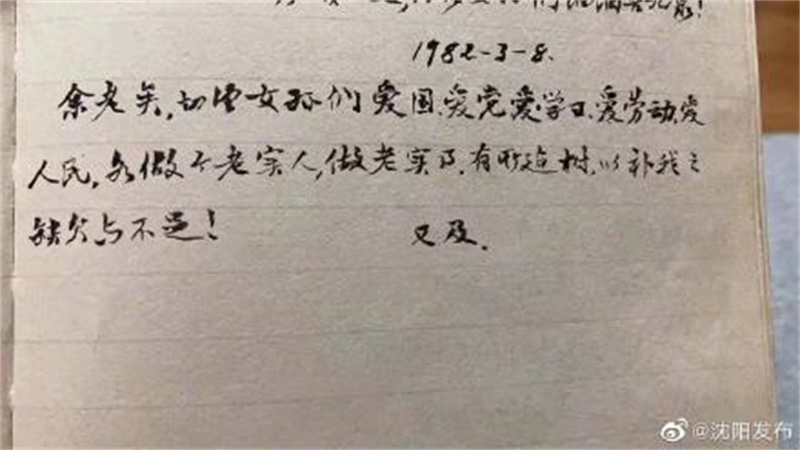 们
1982-3-8.
余老矣,切望女孙们爱国.爱党爱学习.爱劳动.爱
人民,做个老实人,做老实事.有所建树.以补我之
缺欠与不足! 又及.
@沈阳发布